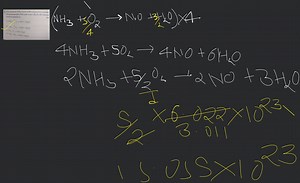 (NH₃ + 5/4 O₂ → NO + 3/2 H₂O) × 4
4NH₃ + 5O₂ → 4NO + 6H₂O
2NH₃ + 5/2 O₂ → 2NO + 3H₂O
5/2 × 6.022 × 10²³
3.011
15.055 × 10²³